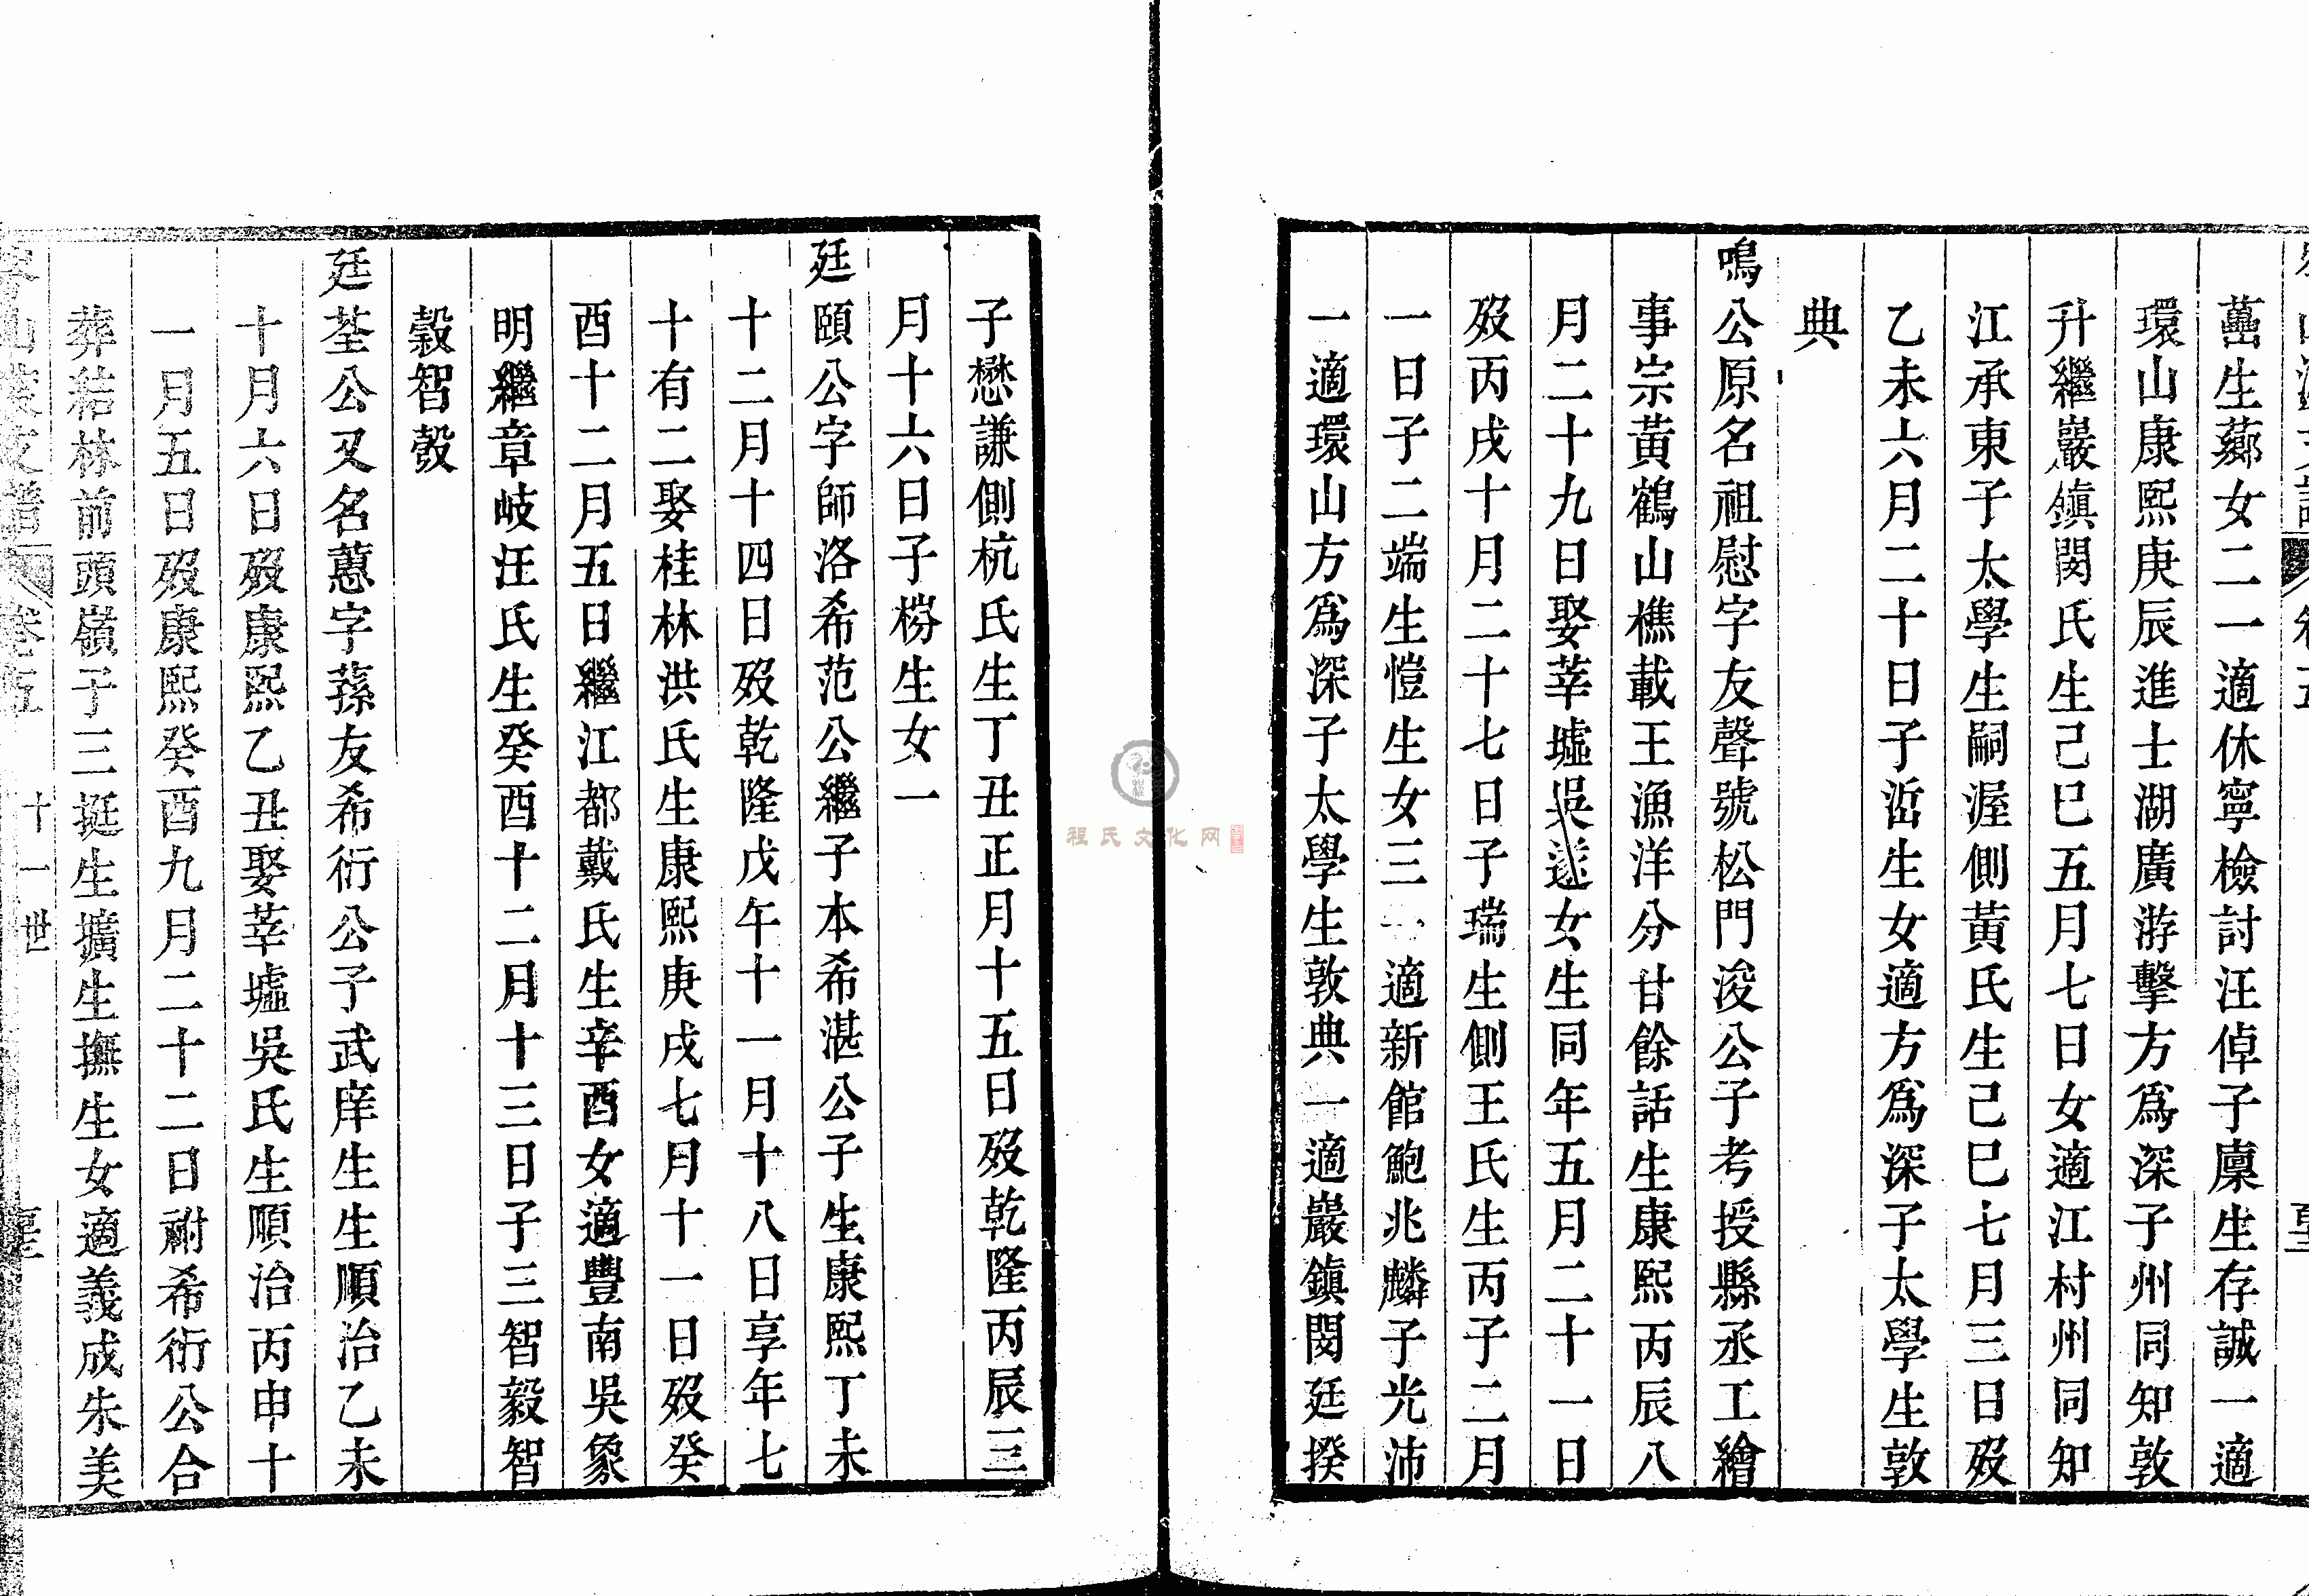 生薌女二一適休寧檢討汪倬子廩生存誠一適
環山康熙庚辰進士湖廣游擊方為深子州同知敦
升繼巖鎮閔氏生己巳五月七日女適江村州同知
江承東子太學生嗣渥側黃氏生己巳七月三日歿
乙未六月二十日子浤生女適方為深子太學生敦
典
鳴公原名祖慰字友聲號松門浚公子考授縣丞工繪
事宗黃鶴山樵載王漁洋分甘餘話生康熙丙辰八
月二十九日娶莘墟吳遂女生同年五月二十一日
歿丙戌十月二十七日子瑞生側王氏生丙子二月
一日子二端生愷生女三一適新館鮑兆麟子光沛
一適環山方為深子太學生敦典一適巖鎮閔廷揆
子懋謙側杭氏生丁丑正月十五日歿乾隆丙辰三
月十六日子㮄生女一
廷頤公字師洛希范公繼子本希湛公子生康熙丁未
十二月十四日歿乾隆戊午十一月十八日享年七
十有二娶桂林洪氏生康熙庚戌七月十一日歿癸
酉十二月五日繼江都戴氏生辛酉女適豐南吳象
明繼章岐汪氏生癸酉十二月十三日子三智毅智
穀智㱿
廷荃公又名蕙字蓀友希衍公子武庠生生順治乙未
十月六日歿康熙乙丑娶莘墟吳氏生順治丙申十
一月五日歿康熙癸酉九月二十二日祔希衍公合
葬秸林前頭嶺子三挺生擴生撫生女適義成朱美
卷五 十一世
程氏文化网